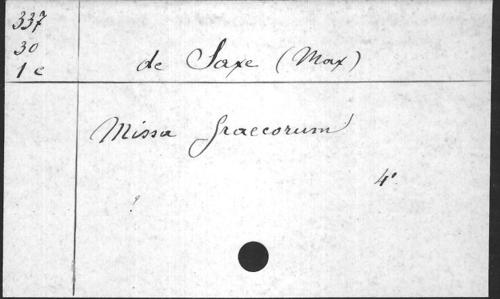 337
30
1 c
de Saxe (Max)
Missa graecorum
4°